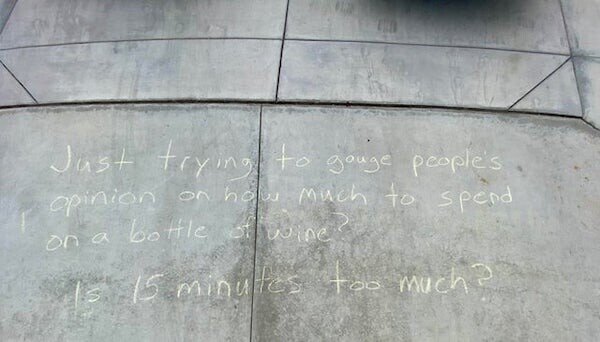 Just trying to gouge people's
opinion on how much to spend
on a bottle of wine?
Is 15 minutes too much?